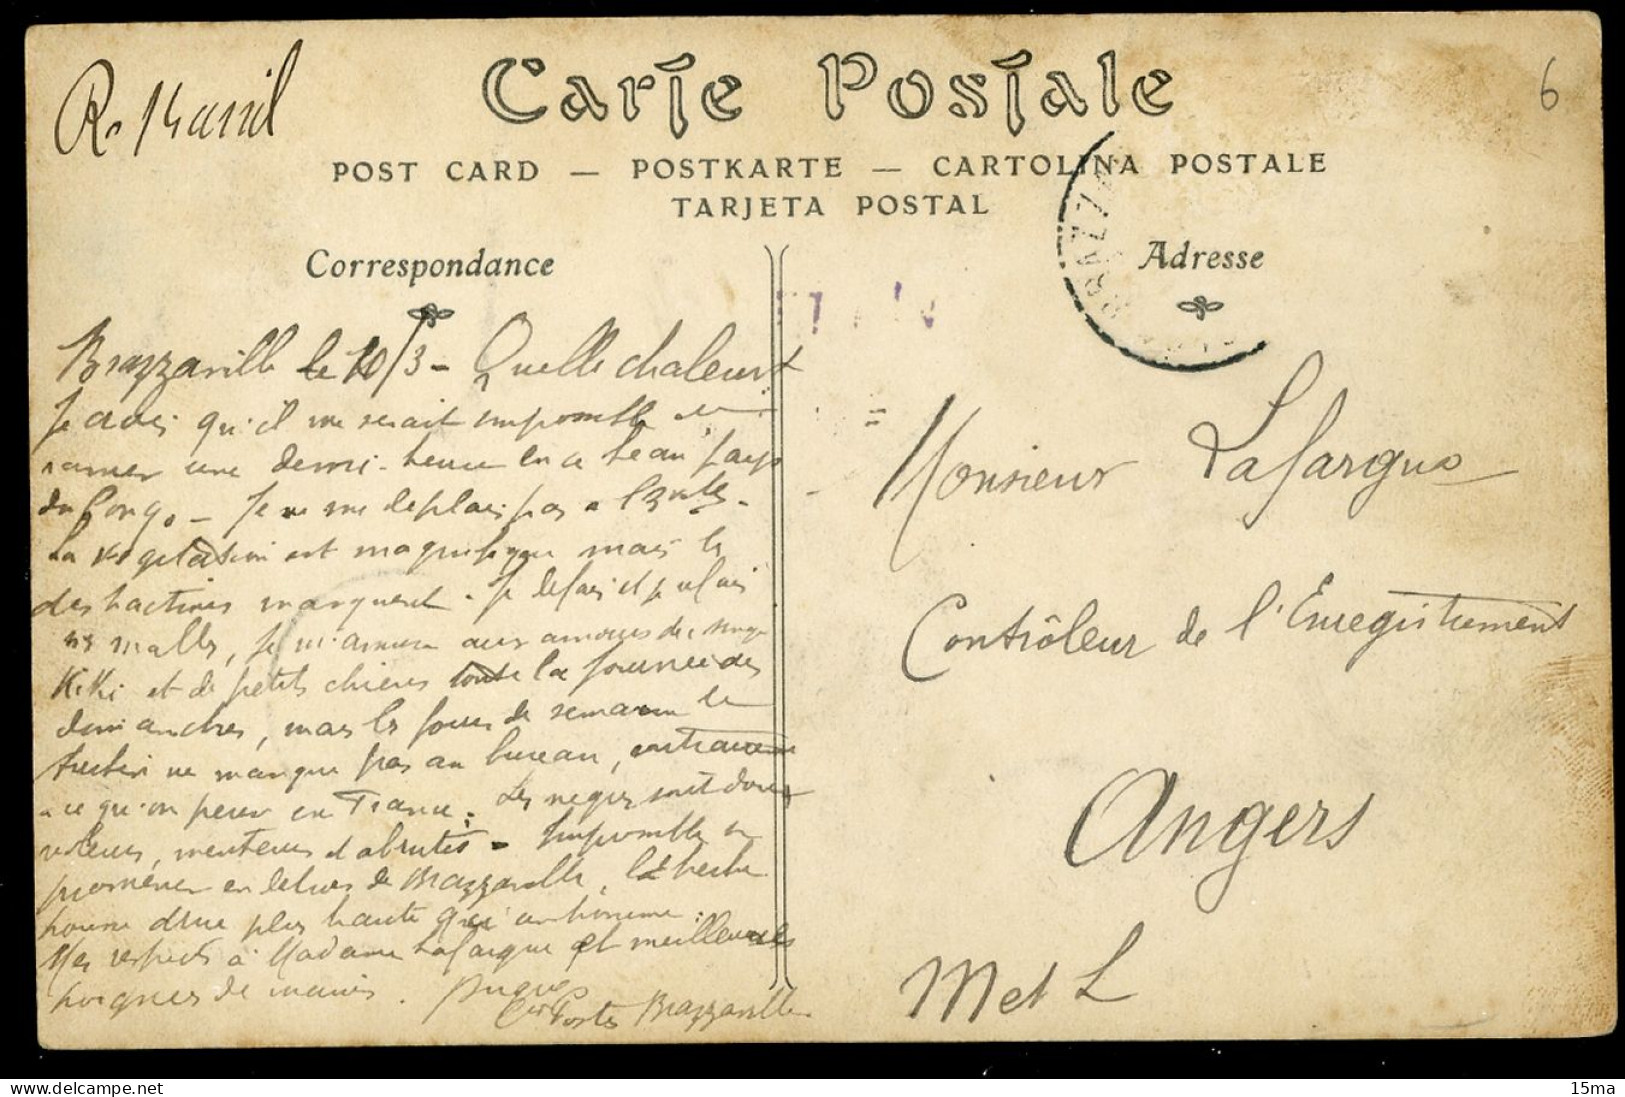 R. 14 avril
Carte Postale
POST CARD — POSTKARTE — CARTOLINA POSTALE
TARJETA POSTAL
6
Correspondance
Brazzaville le 10/3 - Quelle chaleur
Je crois qu'il me serait impossible de
ramer une demi-heure en ce beau pays
du Congo - Je ne me deplais pas a
La vegetation est magnifique mais les
distractions manquent. Je
malles, je m'amuse aux amours du singe
Kiki et de petits chiens toute la journee des
dimanches, mais les jours de semaine le
turbin ne manque pas au bureau, contrairement
a ce qu'on pense en France. Les negres sont
voleurs, menteurs et abrutis - Impossible de
promener en dehors de Brazzaville, l'herbe
plus haute qu'un homme.
Mes respects à Madame Lafargue et meilleures
poignees de mains.
Postes Brazzaville
Adresse
BRAZZA
Monsieur Lafargue
Contrôleur de l'Enregistrement
Angers
M et L
delcampe.net
15ma